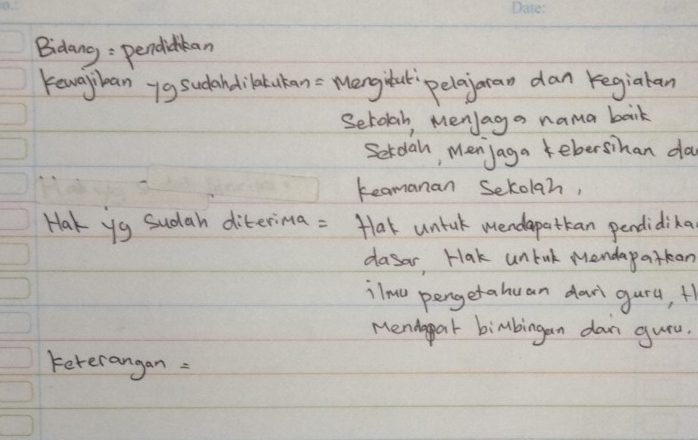 o.:
Date:
Bidang = pendidikan
Kewajiban yg sudah dilakukan = Mengikuti pelajaran dan kegiatan
Sekolah, Menjaga nama baik
Sekolah, Menjaga kebersihan da
keamanan Sekolah,
Hak yg Sudah diterima = Hak untuk Mendapatkan pendidika
dasar, Hak untuk Mendapatkan
ilmu pengetahuan dari guru, H
Mendapat bimbingan dari guru.
Keterangan =